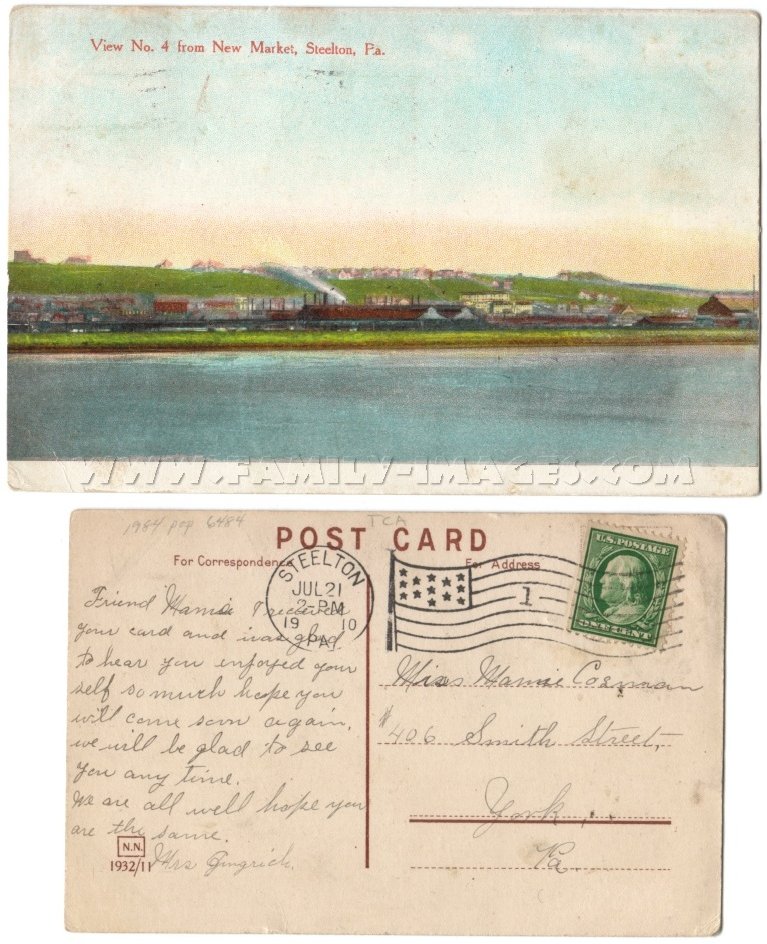 View No. 4 from New Market, Steelton, Pa.
WWW.FAMILY-IMAGES.COM
1984 pop 6484
TCA
POST CARD
For Correspondence
For Address
STEELTON
JUL 21
2-PM
19 10
PA
1
U.S. POSTAGE
ONE CENT
Friend Mamie I received
your card and was glad
to hear you enjoyed your
self so much hope you
will come soon again,
we will be glad to see
you any time.
We are all well hope you
are the same.
Mrs Gingrich.
N.N.
1932/11
Miss Mamie Corman
#406 Smith Street,
York,
Pa.